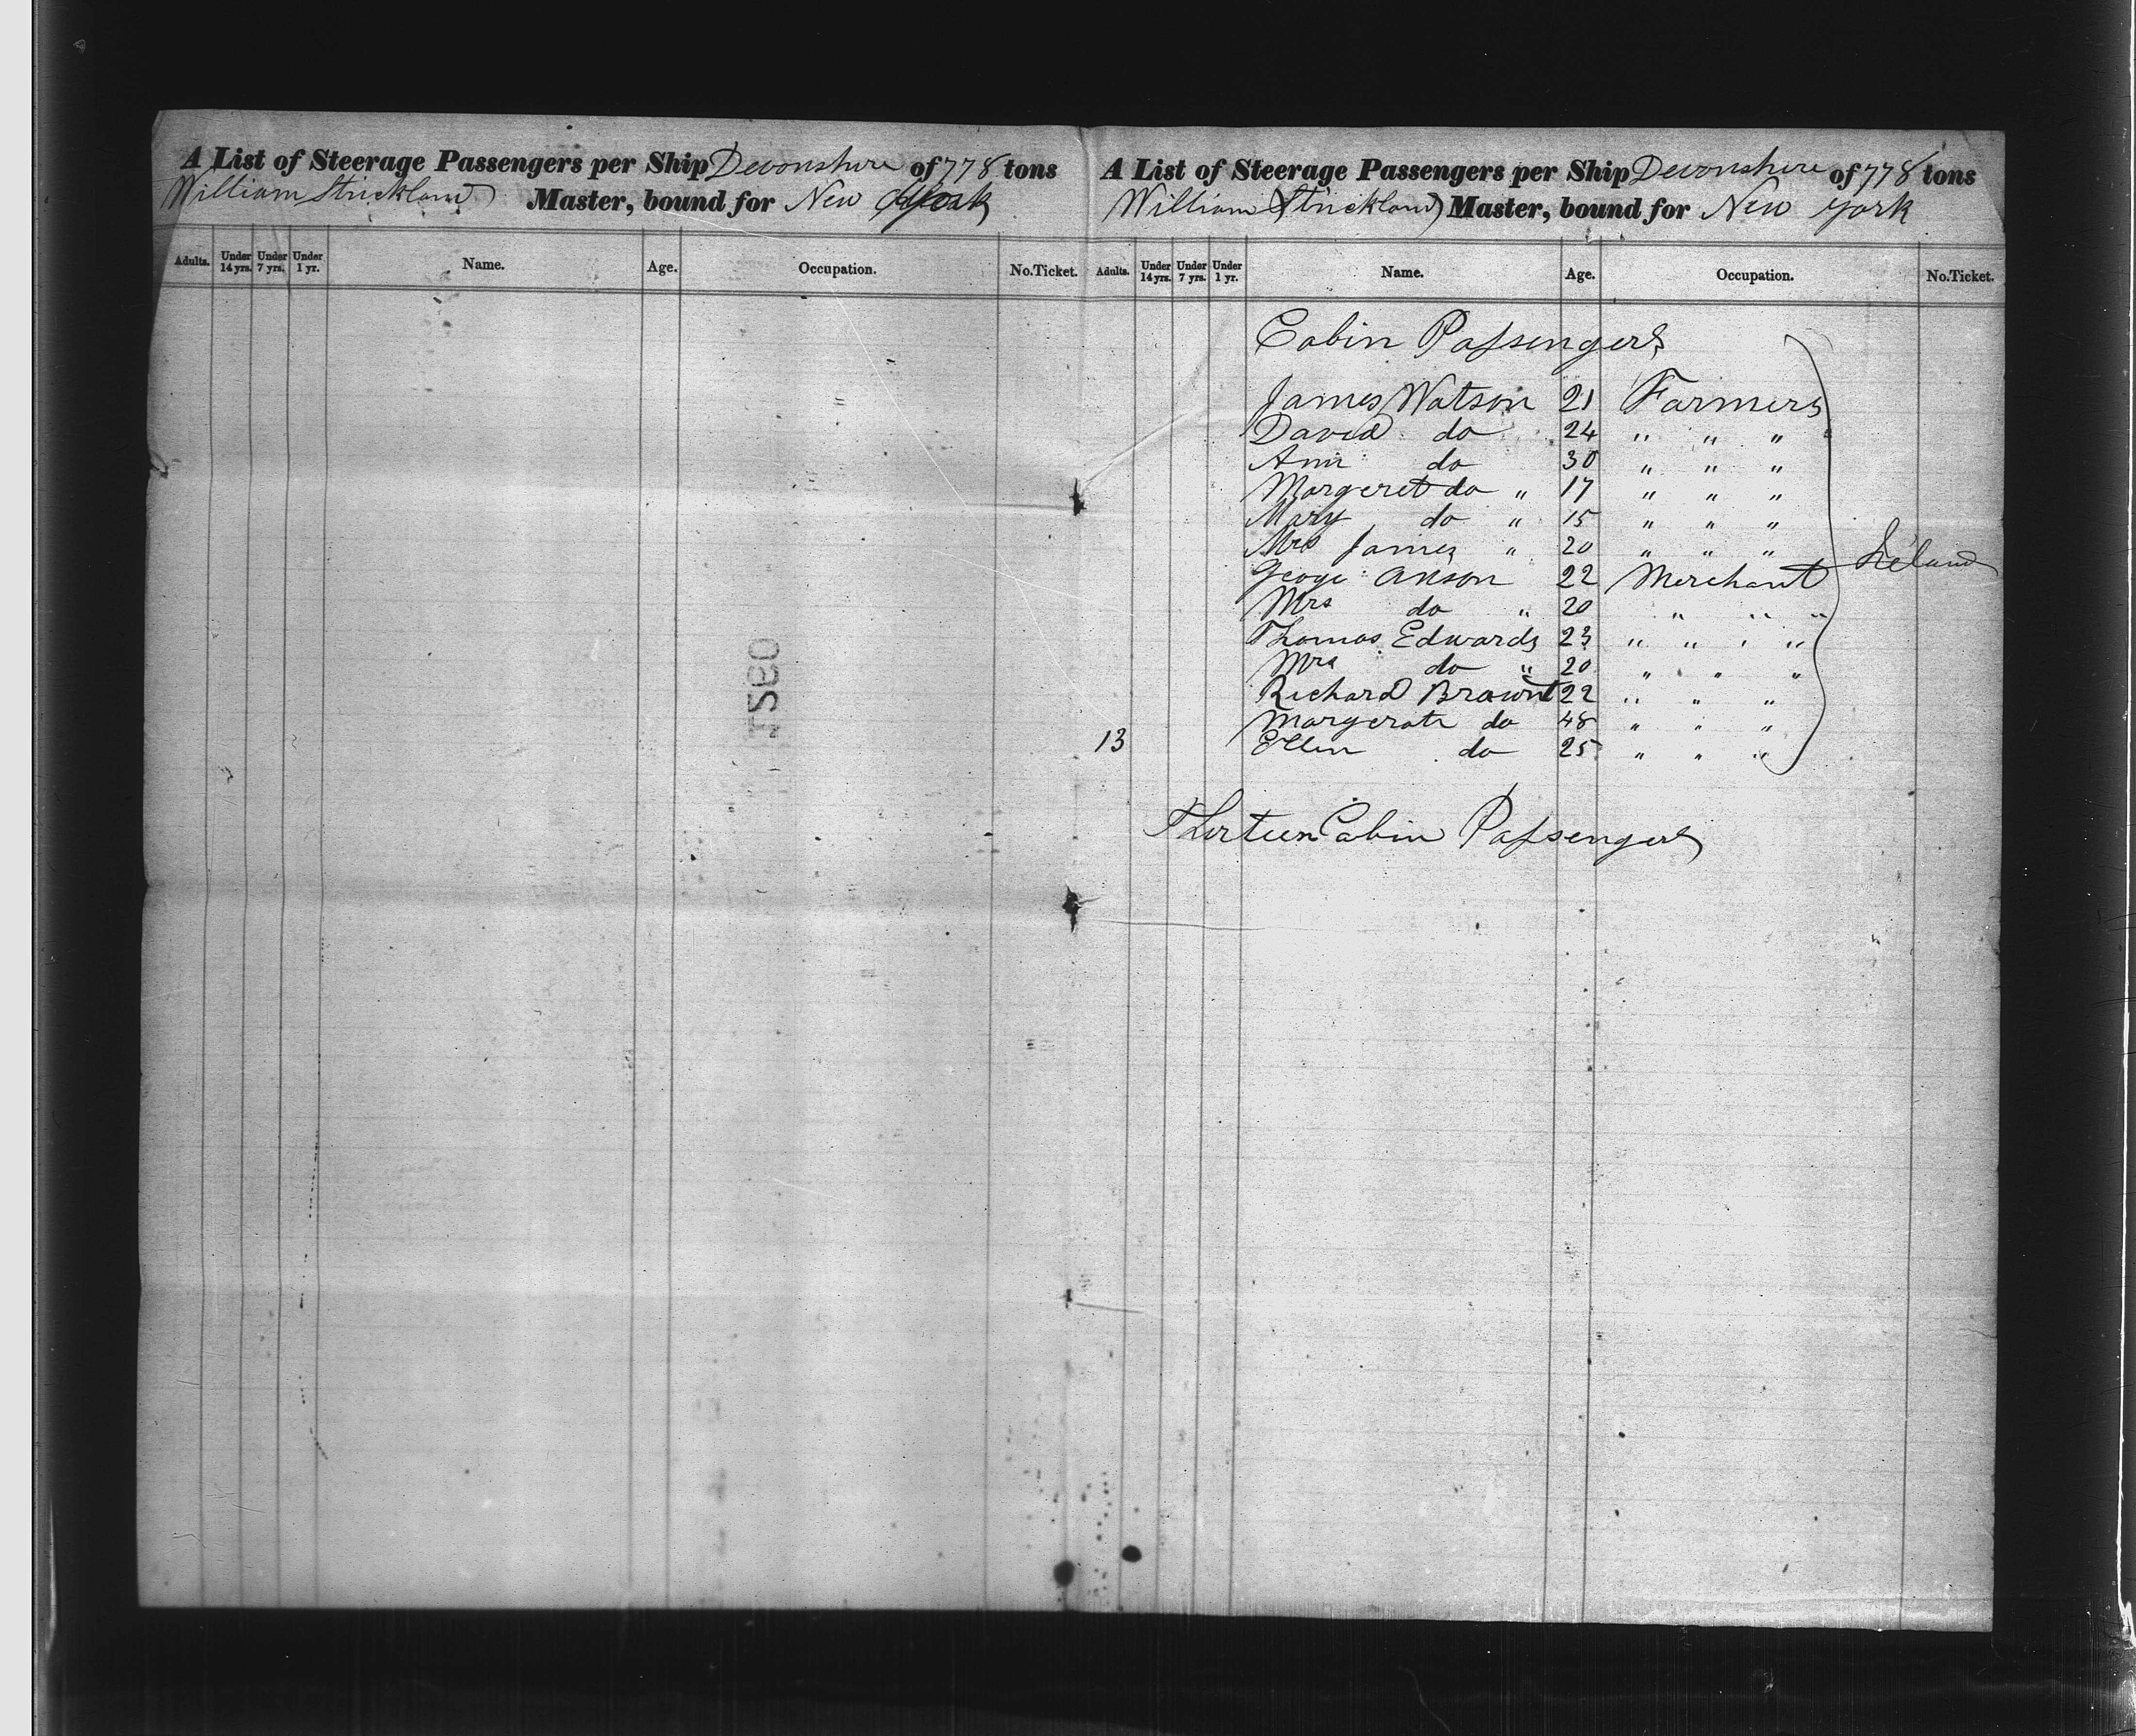 A List of Steerage Passengers per Ship Devonshire of 778 tons
William Strickland Master, bound for New York
Adults. Under 14 yrs. Under 7 yrs. Under 1 yr. Name. Age. Occupation. No. Ticket.
A List of Steerage Passengers per Ship Devonshire of 778 tons
William Strickland Master, bound for New York
Adults. Under 14 yrs. Under 7 yrs. Under 1 yr. Name. Age. Occupation. No. Ticket.
Cabin Passengers
James Watson 21 Farmers
David do 24 " " "
Ann do 30 " " "
Margeret do " 17 " " "
Mary do " 15 " " "
Mrs James " 20 " " "
George 22 Merchant Ireland
Mrs do " 20 " " "
Thomas Edwards 23 " " " "
Mrs do " 20 " " "
Richard Brown 22 " " "
Margerate do 48 " " "
13 Ellen do 25 " " "
Thirteen Cabin Passengers